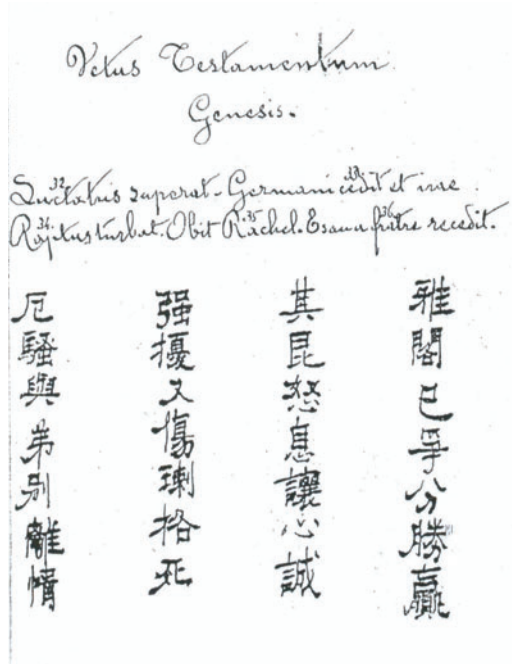 Vetus Testamentum.
Genesis.
32 33
Luctatus superat. Germani cedit et irae
34 35 36
Raptus turbat. Obit Rachel. Esau a fratre recedit.
雅閣已爭分勝贏
其昆怒息讓心誠
强擾又傷格死
厄騷與弟别離情